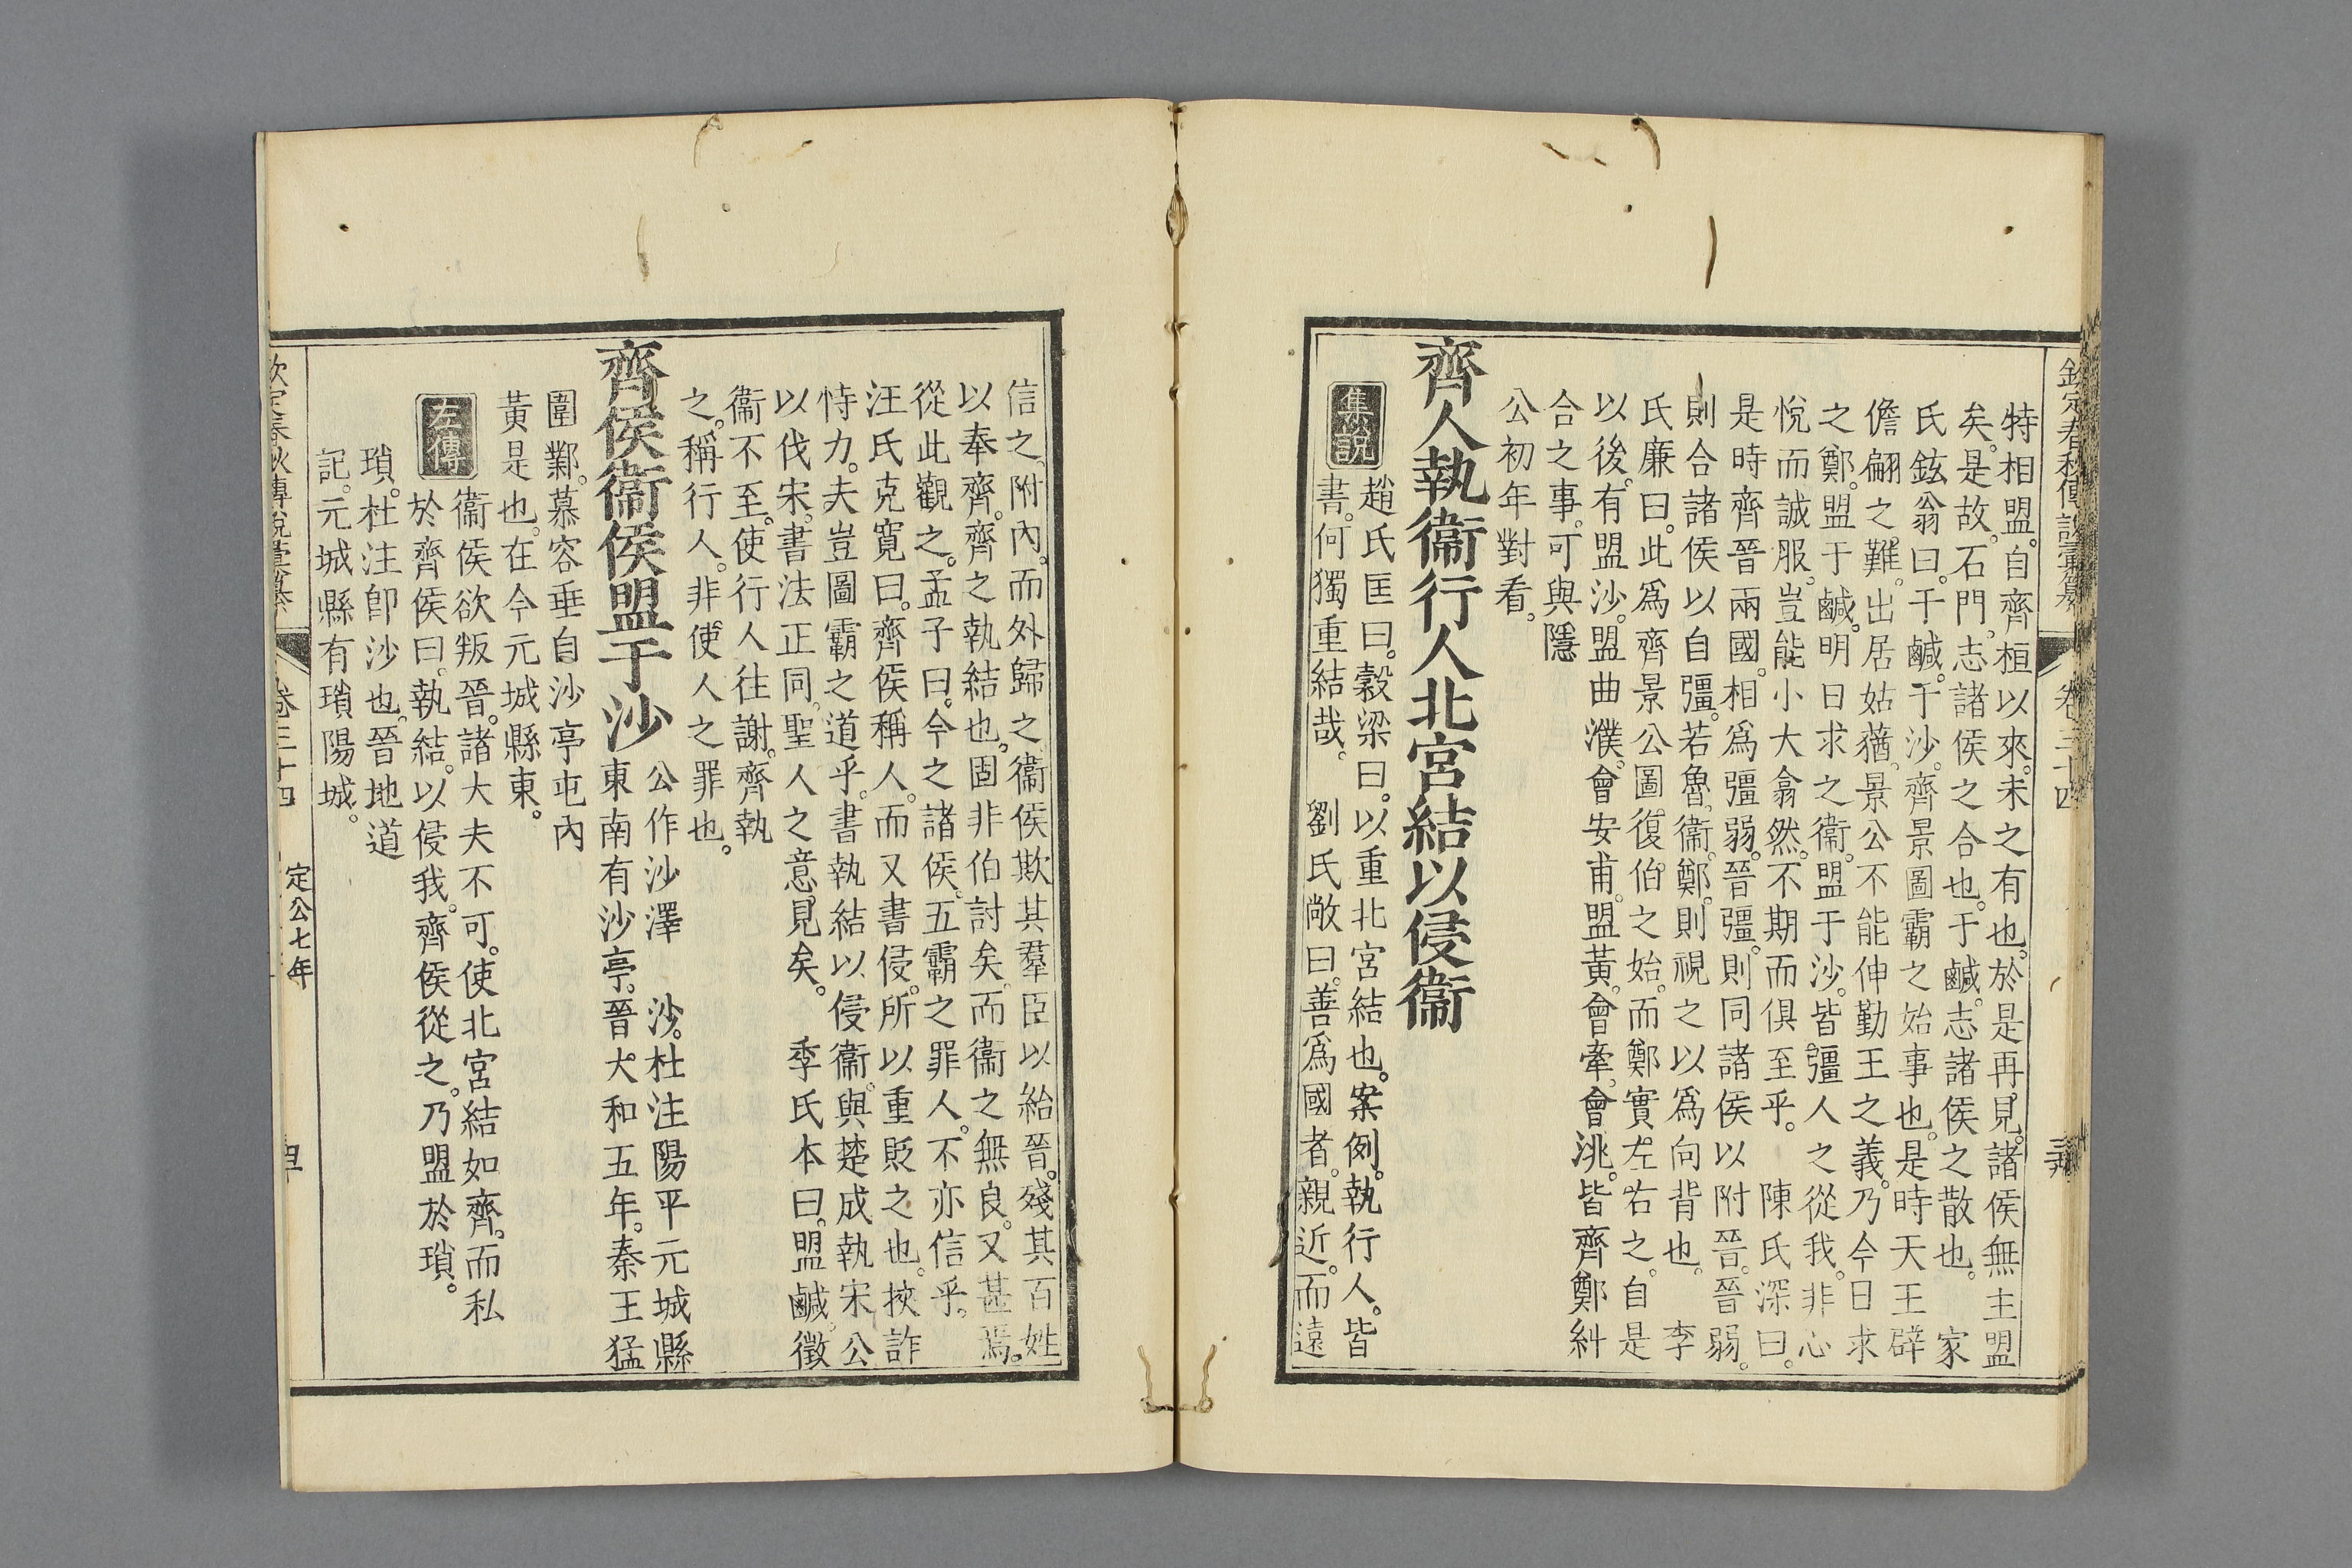 欽定春秋傳說彙纂 卷三十四
特相盟。自齊桓以來。未之有也。於是再見。諸侯無主盟
矣。是故。石門。志諸侯之合也。于鹹。志諸侯之散也。 家
氏鉉翁曰。于鹹。于沙。齊景圖霸之始事也。是時天王辟
儋翩之難。出居姑蕕。景公不能伸勤王之義。乃今日求
之鄭。盟于鹹。明日求之衞。盟于沙。皆彊人之從我。非心
悅而誠服。豈能小大翕然。不期而俱至乎。 陳氏深曰。
是時齊晉兩國。相爲彊弱。晉彊。則同諸侯以附晉。晉弱。
則合諸侯以自彊。若魯。衞。鄭。則視之以爲向背也。 李
氏廉曰。此爲齊景公圖復伯之始。而鄭實左右之。自是
以後。有盟沙。盟曲濮。會安甫。盟黃。會牽。會洮。皆齊鄭糾
合之事。可與隱
公初年對看。
齊人執衞行人北宮結以侵衞
集說
趙氏匡曰。穀梁曰。以重北宮結也。案例。執行人。皆
書。何獨重結哉。 劉氏敞曰。善爲國者。親近。而遠
信之。附內。而外歸之。衞侯欺其羣臣以紿晉。殘其百姓
以奉齊。齊之執結也。固非伯討矣。而衞之無良。又甚焉。
從此觀之。孟子曰。今之諸侯。五霸之罪人。不亦信乎。
汪氏克寬曰。齊侯稱人。而又書侵。所以重貶之也。挾詐
恃力。夫豈圖霸之道乎。書執結以侵衞。與楚成執宋公
以伐宋。書法正同。聖人之意見矣。 季氏本曰。盟鹹。徵
衞不至。使行人往謝。齊執
之。稱行人。非使人之罪也。
齊侯衞侯盟于沙
公作沙澤 沙。杜注陽平元城縣
東南有沙亭。晉大和五年。秦王猛
圍鄴。慕容垂自沙亭屯內
黃是也。在今元城縣東。
左傳
衞侯欲叛晉。諸大夫不可。使北宮結如齊。而私
於齊侯曰。執結。以侵我。齊侯從之。乃盟於瑣。
瑣。杜注卽沙也。晉地道
記。元城縣有瑣陽城。
欽定春秋傳說彙纂 卷三十四 定公七年